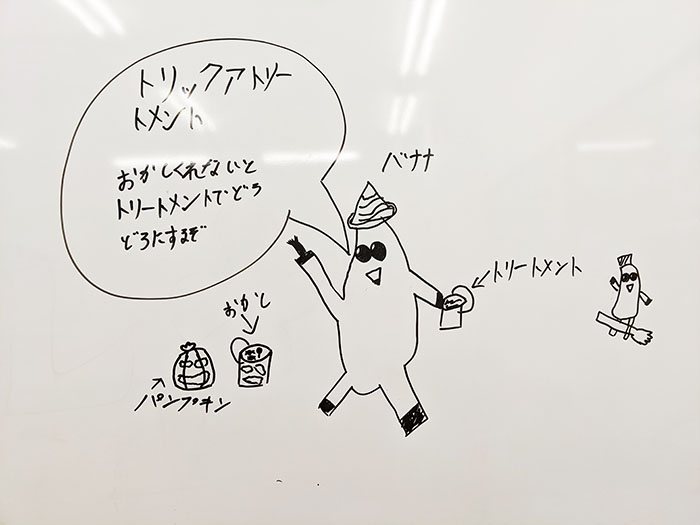 トリックアトリー
トメント
おかしくれないと
トリートメントでどう
どろにすまぞ
バナナ
トリートメント
おかし
パンプキン